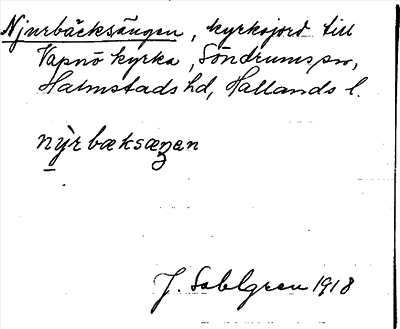 Njurbäcksängen, kyrkojord till
Vapnö kyrka, Söndrums sn,
Halmstads hd, Hallands l.
ny̆r bæksæŋen
J. Sahlgren 1918